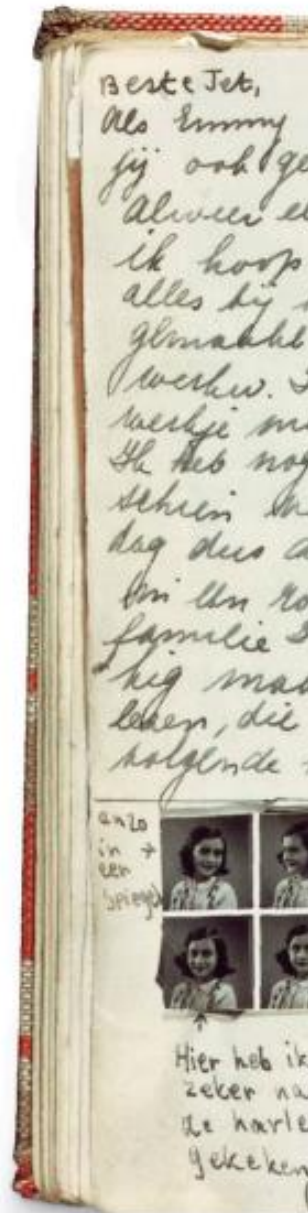 Beste Jet,
Als Emmy
jij ook ge
alweer e
ik hoop
alles bij
gemaakt
werken.
werkje me
Ik heb nog
schien
dag dus
in een
familie
nig maa
leven, die
volgende
en zo
in →
een
spiegel
Hier heb ik
zeker na
de harle
gekeken